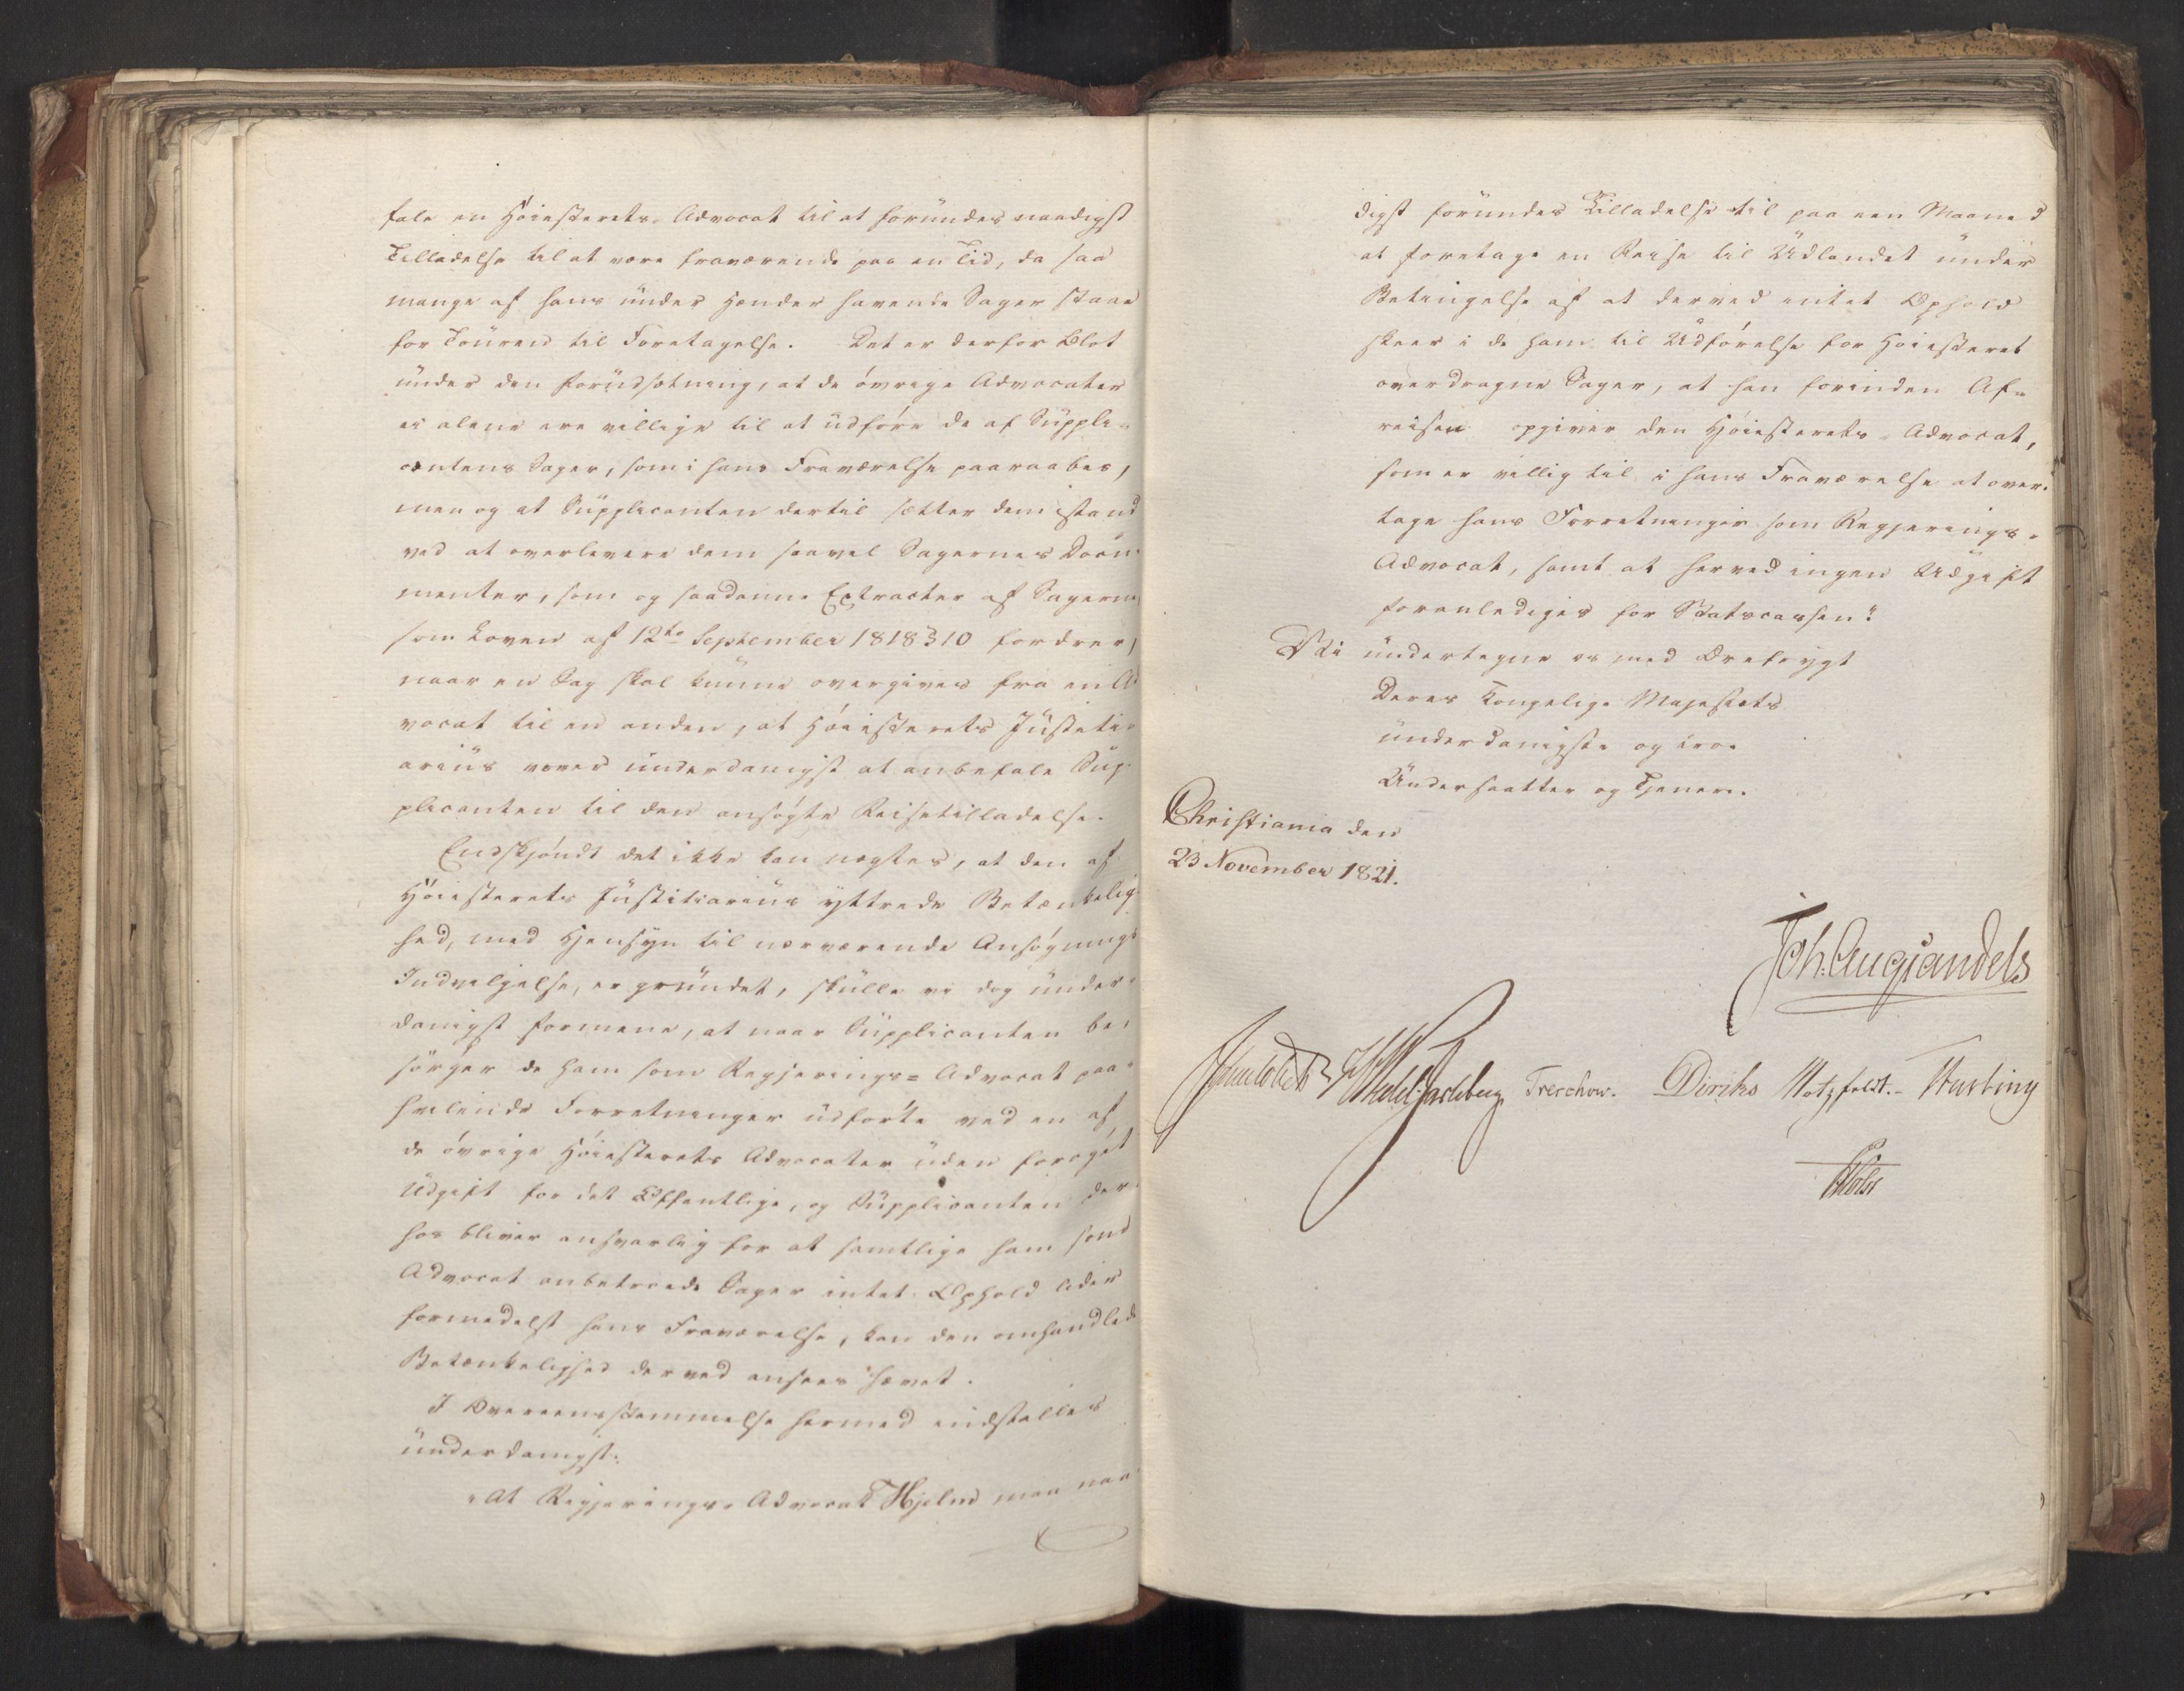 fale en Høiesterets-Advocat til at forundes naadigst
Tilladelse til at være fraværende paa en Tid, da saa
mange af hans under Hænder havende Sager staae
for Touren til Foretagelse. Det er derfor blot
under den Forudsætning, at de øvrige Advocater
ei alene ere villige til at udføre de af Suppli-
cantens Sager, som i hans Fraværelse paaraabes,
men og at Supplicanten dertil sætter dem istand
ved at overlevere dem saavel Sagernes Docu-
menter, som og saadanne Extracter af Sagerne,
som Loven af 12te September 1818 § 10 fordrer,
naar en Sag skal kunne overgives fra en Ad
vocat til en anden, at Høiesterets Justiti-
arius vover underdanigst at anbefale Sup-
plicanten til den ansøgte Reisetilladelse.
Endskjøndt det ikke kan nægtes, at den af
Høiesterets Justitiarius yttrede Betænkelig-
hed, med Hensyn til nærværende Ansøgnings
Indvilgelse, er grundet, skulle vi dog under-
danigst formene, at naar Supplicanten be-
sørger de ham som Regjerings-Advocat paa-
hvilende Forretninger udførte ved en af
de øvrige Høiesterets Advocater uden forøget
Udgift for det Offentlige, og Supplicanten der-
hos bliver ansvarlig for at samtlige ham som
Advocat anbetroede Sager intet Ophold lider
formedelst hans Fraværelse, kan den omhandlede
Betænkelighed derved ansees hævet.
I Overeensstemmelse hermed indstilles
underdanigst:
"At Regjerings-Advocat Hjelm maa naa-
digst forundes Tilladelse til paa een Maaned
at foretage en Reise til Udlandet under
Betingelse af at derved intet Ophold
skeer i de ham til Udførelse for Høiesteret
overdragne Sager, at han forinden Af-
reisen opgiver den Høiesterets-Advocat,
som er villig til i hans Fraværelse at over-
tage hans Forretninger som Regjerings-
Advocat, samt at herved ingen Udgift
foranlediges for Statscassen."
Vi undertegne os med Ærefrygt
Deres Kongelige Majestæts
underdanigste og troe
Undersaatter og Tjenere.
Christiania den
23 November 1821.
Joh. Aug Sandels
Wedel Jarlsberg Treschow. Diriks Motzfeldt.- Fasting
Holst